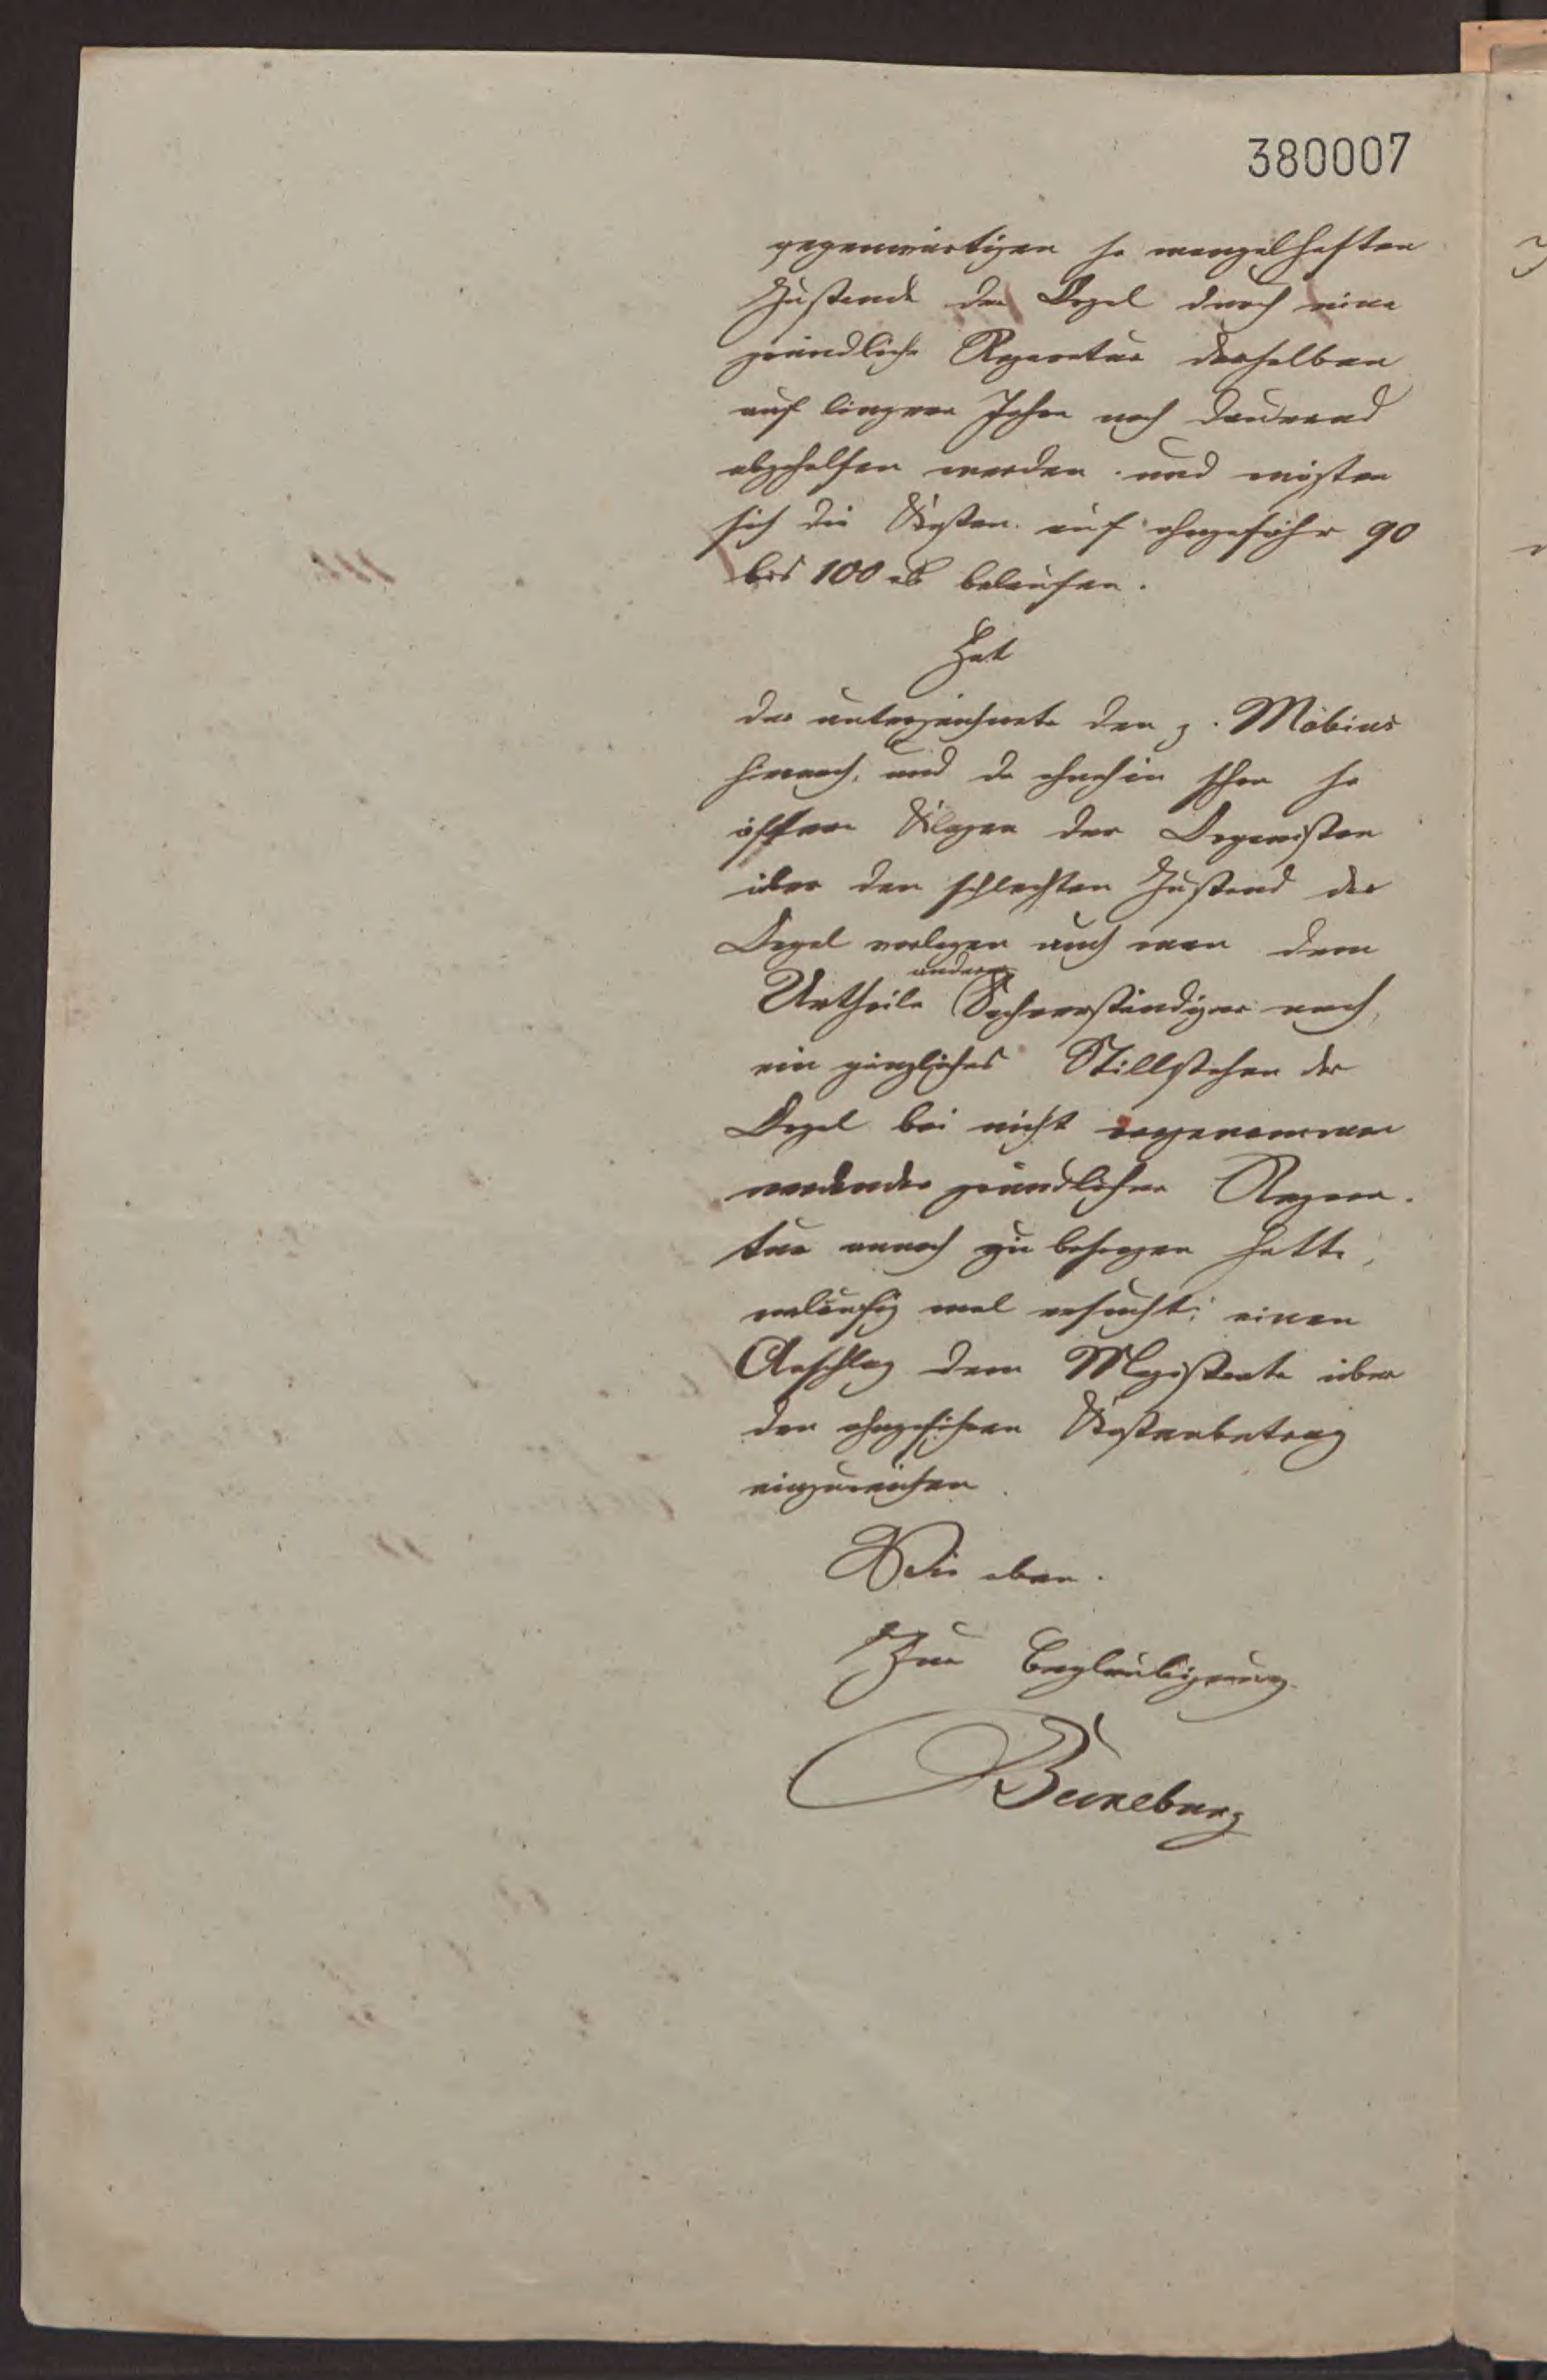 380007
gegenwärtigen so mangelhaften
Zustande der Orgel durch eine
gründliche Reparatur derselben
auf längere Jahre noch dauernd
abgeholfen werden und müßten
sich die Kosten auf ohngefähr 90
bis 100 belaufen.
Hat
der unterzeichnete den Möbius
hernach, und da ohnehin schon so
öftere Klagen der Organisten
über den schlechten Zustand der
Orgel vorlagen auch man dem
anderer
Urtheile Sachverständiger nach
ein gänzliches Stillstehen der
Orgel bei nicht vorgenommen
werdender gründlicher Repara-
tur annoch zu besorgen hatte,
vorläufig mal ersucht: einen
Anschlag dem Magistrate über
den ohngefähren Kostenbetrag
einzureichen.
Wie oben.
Zur Beglaubigung
Beuneburg